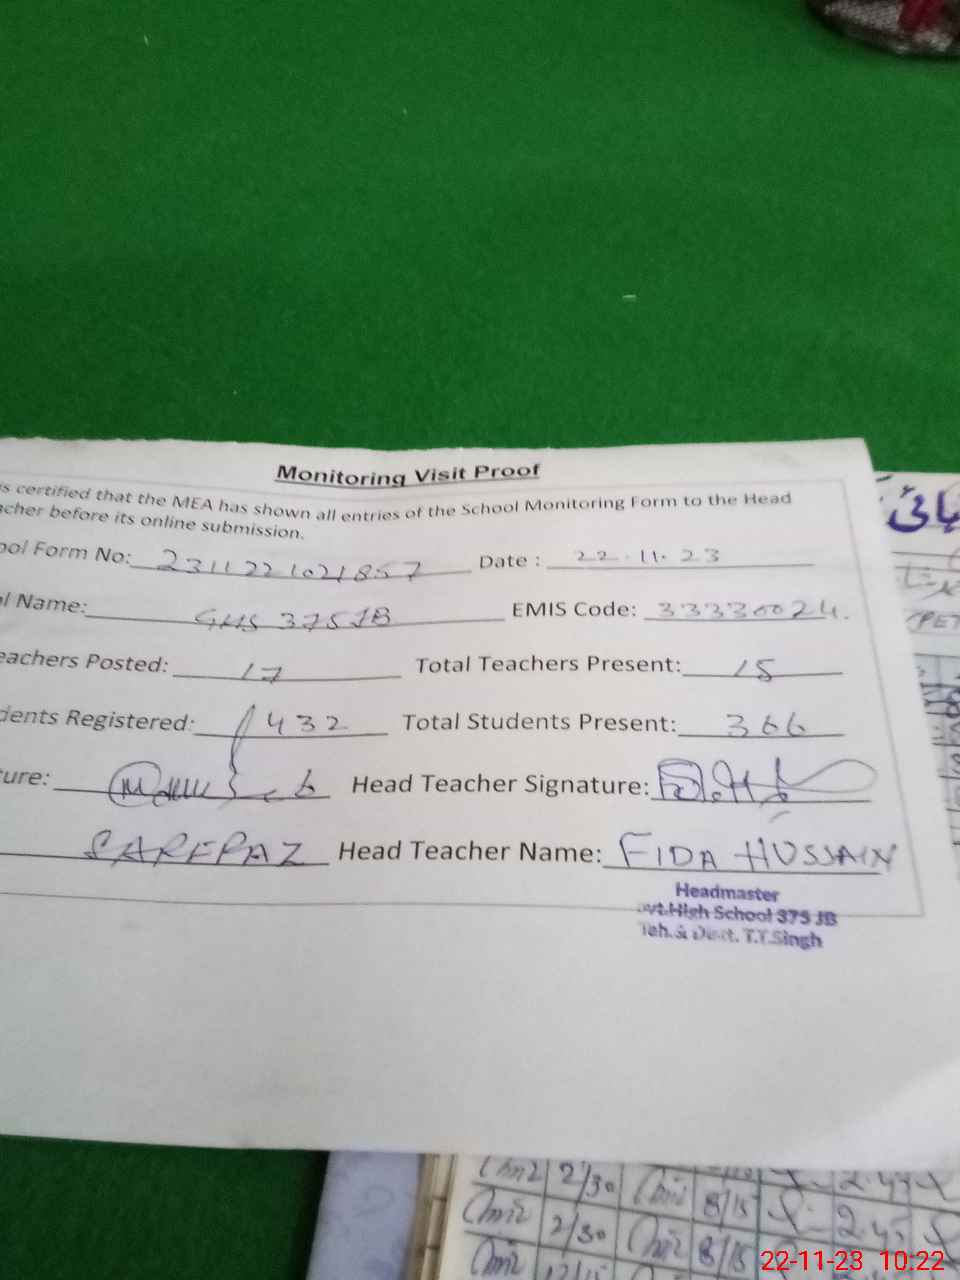 Monitoring Visit Proof
is certified that the MEA has shown all entries of the School Monitoring Form to the Head
acher before its online submission.
ool Form No: 2311221021857 Date : 22.11.23
l Name: GHS 375JB EMIS Code: 33330024.
eachers Posted: 17 Total Teachers Present: 15
dents Registered: 432 Total Students Present: 366
ture: Head Teacher Signature:
SARFRAZ Head Teacher Name: FIDA HUSSAIN
Headmaster
ovt.High School 375 JB
Teh. & Distt. T.T.Singh
2/30 8/15 2.45
2/30 8/15 2.45
22-11-23 10:22